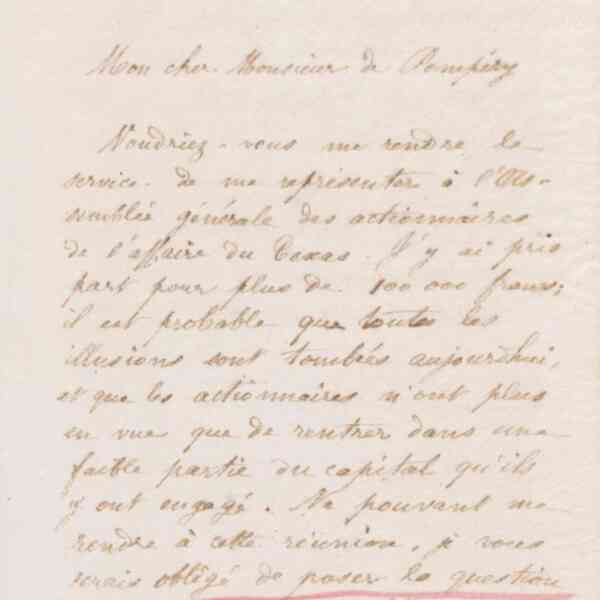 Mon cher Monsieur de Pompéry
Voudriez-vous me rendre le
service de me représenter à l'As-
semblée générale des actionnaires
de l'affaire du Texas. J'y ai pris
part pour plus de 100 000 francs;
il est probable que toutes les
illusions sont tombées aujourd'hui,
et que les actionnaires n'ont plus
en vue que de rentrer dans une
faible partie du capital qu'ils
y ont engagé. Ne pouvant me
rendre à cette réunion, je vous
serais obligé de poser la question